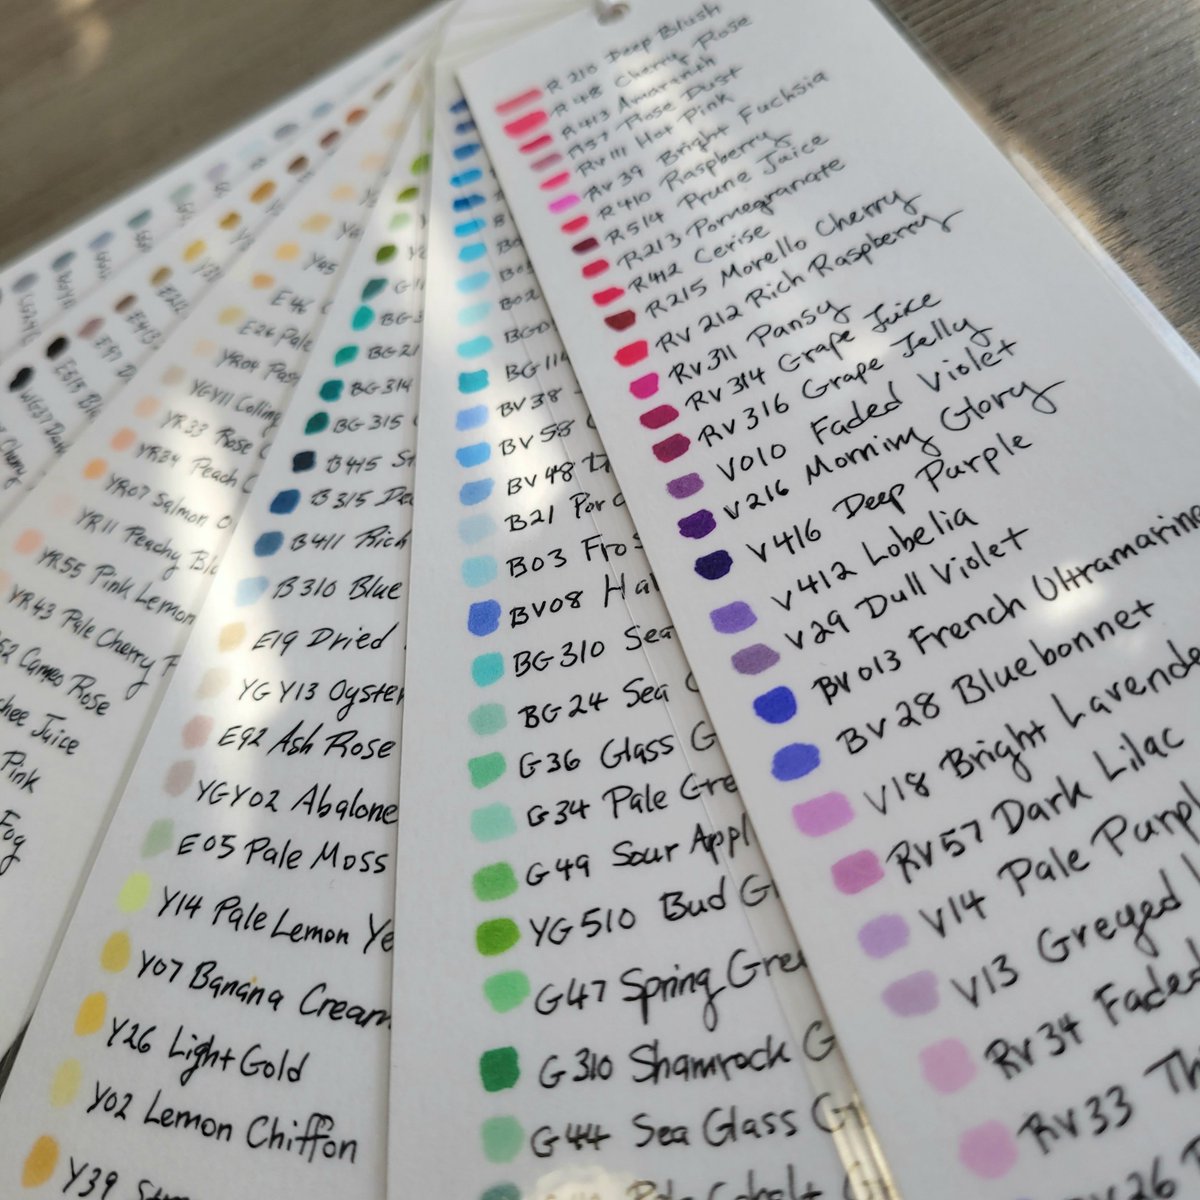 R 210 Deep Blush
R 48 Cherry Rose
R413 Amaranth
R57 Rose Dust
RV111 Hot Pink
RV 39 Bright Fuchsia
R 410 Raspberry
R514 Prune Juice
R213 Pomegranate
R412 Cerise
R215 Morello Cherry
RV 212 Rich Raspberry
RV311 Pansy
RV 314 Grape Juice
RV 316 Grape Jelly
V010 Faded Violet
V216 Morning Glory
V416 Deep Purple
V412 Lobelia
V29 Dull Violet
BV013 French Ultramarine
BV28 Bluebonnet
V18 Bright Lavende
RV57 Dark Lilac
V14 Pale Purpl
V13 Greyed
RV34 Faded
RV33 Th
B02
BG0
BG114
BV38
BV58
BV48
B21 Por
B03 Fros
BV08 Hal
BG310 Sea
BG24 Sea
G36 Glass G
G34 Pale Gre
G49 Sour Appl
YG510 Bud G
G47 Spring Gree
G310 Shamrock G
G44 Sea Glass Gr
BG314
BG315
B415 St
B315 De
B411 Rich
B310 Blue
E19 Dried
YGY13 Oyster
E92 Ash Rose
YGY02 Abalone
E05 Pale Moss
Y14 Pale Lemon Ye
Y07 Banana Cream
Y26 Light Gold
Y02 Lemon Chiffon
Y39
E46
E26 Pale
YR04
YGY11
YR33 Rose
YR24 Peach
YR07 Salmon
YR11 Peachy Bl
YR55 Pink Lemon
YR43 Pale Cherry
52 Cameo Rose
hee Juice
Pink
Fog
E413
E97
E515
Cherry